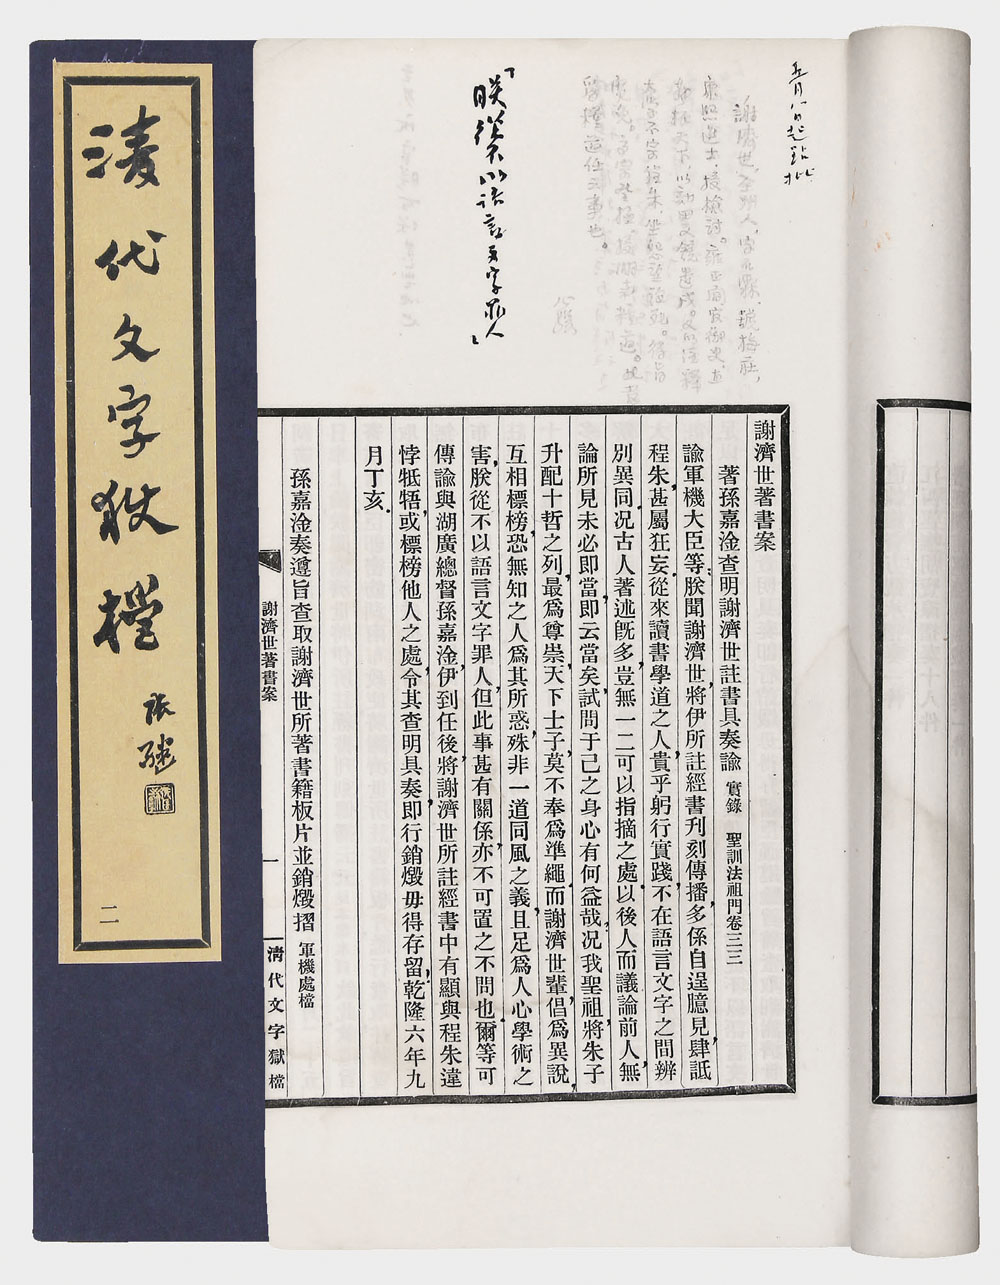 清代文字獄檔
張繼
二
五月八日起點批
「朕從不以語言文字罪人」
謝濟世著書案
著孫嘉淦查明謝濟世註書具奏諭 實錄 聖訓法祖門卷三三
諭軍機大臣等朕聞謝濟世將伊所註經書刊刻傳播多係自逞臆見肆詆
程朱甚屬狂妄從來讀書學道之人貴乎躬行實踐不在語言文字之間辨
別異同况古人著述旣多豈無一二可以指摘之處以後人而議論前人無
論所見未必即當即云當矣試問于己之身心有何益哉况我聖祖將朱子
升配十哲之列最爲尊崇天下士子莫不奉爲準繩而謝濟世輩倡爲異說
互相標榜恐無知之人爲其所惑殊非一道同風之義且足爲人心學術之
害朕從不以語言文字罪人但此事甚有關係亦不可置之不問也爾等可
傳諭與湖廣總督孫嘉淦伊到任後將謝濟世所註經書中有顯與程朱違
悖牴牾或標榜他人之處令其查明具奏即行銷燬毋得存留乾隆六年九
月丁亥
孫嘉淦奏遵旨查取謝濟世所著書籍板片並銷燬摺 軍機處檔
謝濟世著書案
一
清代文字獄檔